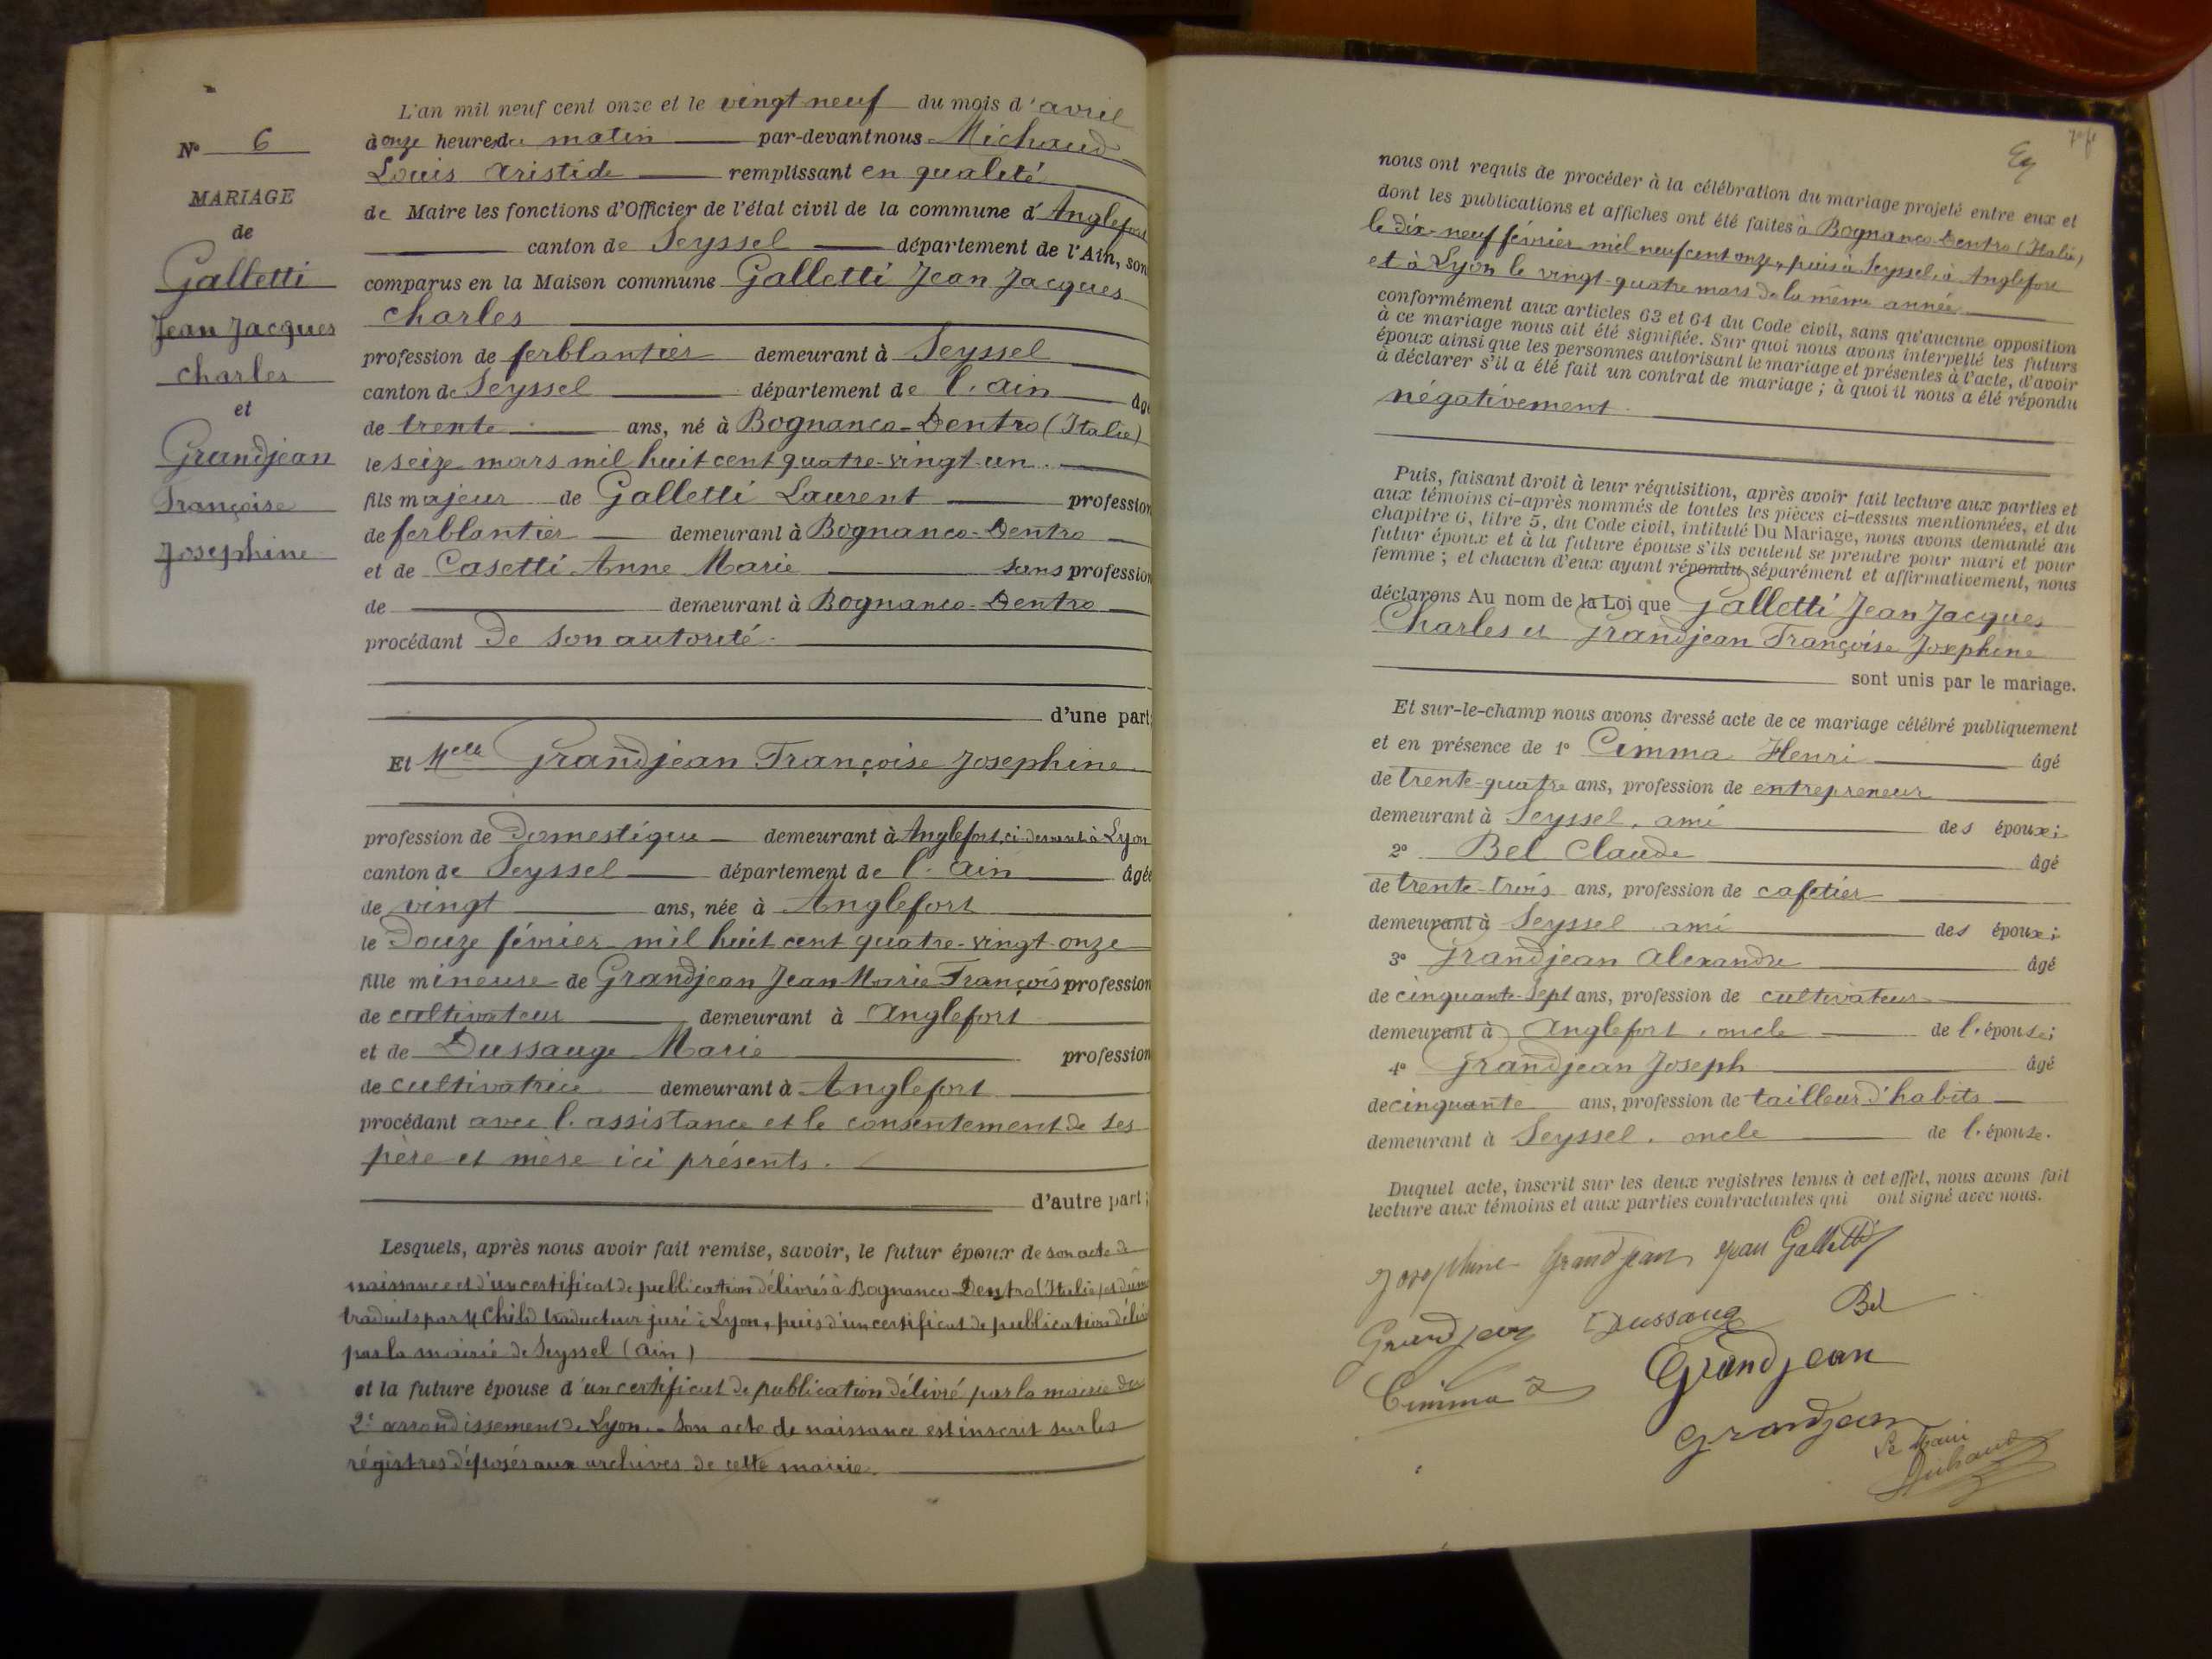 L'an mil neuf cent onze et le vingt neuf du mois d'avril
N° 6
à onze heures du matin par-devant nous Michaud
Louis Aristide remplissant en qualité
MARIAGE
de Maire les fonctions d'Officier de l'état civil de la commune d'Anglefort
de
canton de Seyssel département de l'Ain, son
Galletti
comparus en la Maison commune Galletti Jean Jacques
Jean Jacques
Charles
profession de ferblantier demeurant à Seyssel
Charles
canton de Seyssel département de l'Ain âgé
et
de trente ans, né à Bognanco-Dentro (Italie)
Grandjean
le seize mars mil huit cent quatre-vingt-un
Françoise
fils majeur de Galletti Laurent profession
de ferblantier demeurant à Bognanco-Dentro
Josephine
et de Casetti Anne Marie sans profession
de demeurant à Bognanco-Dentro
procédant de son autorité
d'une part;
Et Melle Grandjean Françoise Josephine
profession de Domestique demeurant à Anglefort, ci-devant à Lyon
canton de Seyssel département de l'Ain âgée
de vingt ans, née à Anglefort
le Douze février mil huit cent quatre-vingt-onze
fille mineure de Grandjean Jean Marie François profession
de cultivateur demeurant à Anglefort
et de Dussauge Marie profession
de cultivatrice demeurant à Anglefort
procédant avec l'assistance et le consentement de ses
père et mère ici présents.
d'autre part;
Lesquels, après nous avoir fait remise, savoir, le futur époux de son acte de
naissance et d'un certificat de publication délivrés à Bognanco-Dentro (Italie) et dûment
traduits par M Child traducteur juré à Lyon, puis d'un certificat de publication délivré
par la mairie de Seyssel (Ain)
et la future épouse d'un certificat de publication délivré par la mairie du
2e arrondissement de Lyon. Son acte de naissance est inscrit sur les
régistres déposés aux archives de cette mairie.
nous ont requis de procéder à la célébration du mariage projeté entre eux et
dont les publications et affiches ont été faites à Bognanco-Dentro (Italie)
le dix-neuf février mil neuf cent onze, puis à Seyssel, à Anglefort
et à Lyon le vingt-quatre mars de la même année
conformément aux articles 63 et 64 du Code civil, sans qu'aucune opposition
à ce mariage nous ait été signifiée. Sur quoi nous avons interpellé les futurs
époux ainsi que les personnes autorisant le mariage et présentes à l'acte, d'avoir
à déclarer s'il a été fait un contrat de mariage ; à quoi il nous a été répondu
négativement.
Puis, faisant droit à leur réquisition, après avoir fait lecture aux parties et
aux témoins ci-après nommés de toutes les pièces ci-dessus mentionnées, et du
chapitre 6, titre 5, du Code civil, intitulé Du Mariage, nous avons demandé au
futur époux et à la future épouse s'ils veulent se prendre pour mari et pour
femme ; et chacun d'eux ayant répondu séparément et affirmativement, nous
déclarons Au nom de la Loi que Galletti Jean Jacques
Charles et Grandjean Françoise Josephine
sont unis par le mariage.
Et sur-le-champ nous avons dressé acte de ce mariage célébré publiquement
et en présence de 1° Cimma Henri âgé
de trente-quatre ans, profession de entrepreneur
demeurant à Seyssel, ami des époux;
2° Bel Claude âgé
de trente-trois ans, profession de cafetier
demeurant à Seyssel ami des époux;
3° Grandjean Alexandre âgé
de cinquante-sept ans, profession de cultivateur
demeurant à Anglefort, oncle de l'épouse;
4° Grandjean Joseph âgé
de cinquante ans, profession de tailleur d'habits
demeurant à Seyssel, oncle de l'épouse.
Duquel acte, inscrit sur les deux registres tenus à cet effet, nous avons fait
lecture aux témoins et aux parties contractantes qui ont signé avec nous.
Josephine Grandjean Jean Galletti
Grandjean Dussauge Bel
Cimma Grandjean
Grandjean
Le Maire
Michaud